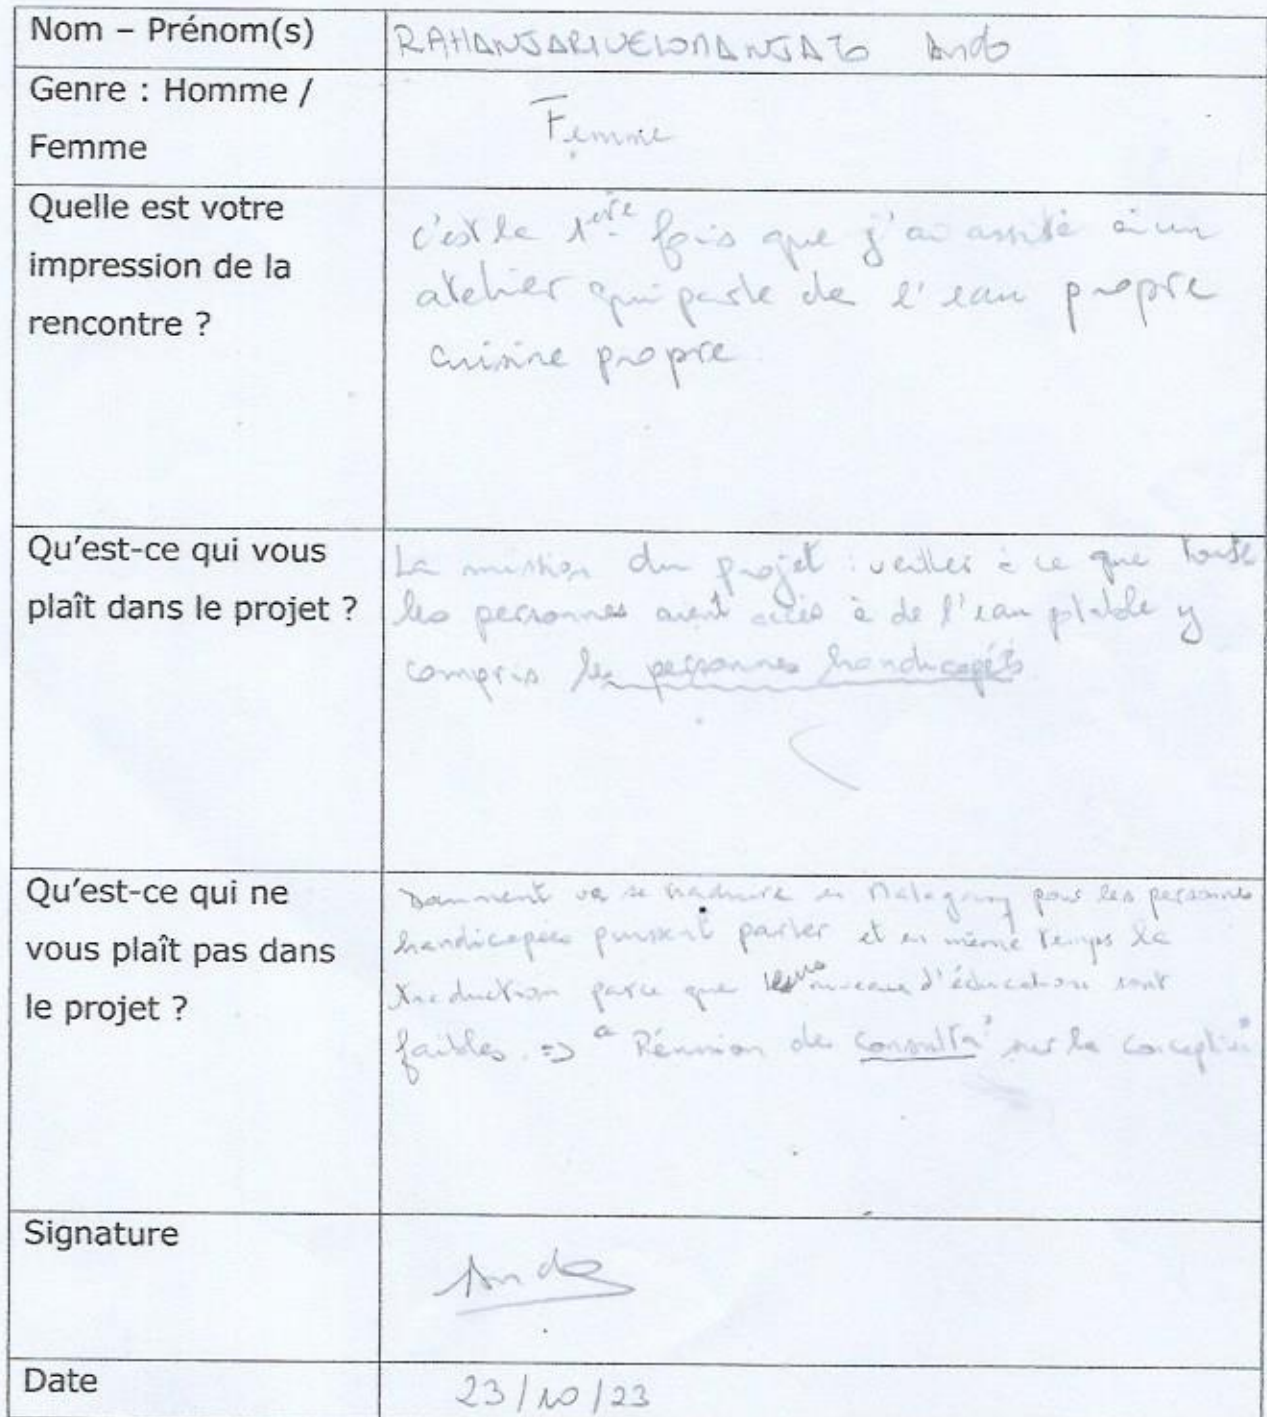 Nom – Prénom(s)
RAHANJARIVELOMANJATO Ando
Genre : Homme /
Femme
Femme
Quelle est votre
impression de la
rencontre ?
c'est la 1ère fois que j'ai assité à un
atelier qui parle de l'eau propre
cuisine propre
Qu'est-ce qui vous
plaît dans le projet ?
La mission du projet : veiller à ce que toute
les personnes aient accès à de l'eau ptable y
compris les personnes handicapés
Qu'est-ce qui ne
vous plaît pas dans
le projet ?
va se traduire en Malagasy pour les personnes
handicapées puissent parler et en même temps la
traduction parce que leurs niveaux d'éducation sont
faibles. => Réunion de consulta° sur la conception
Signature
Ando
Date
23/10/23